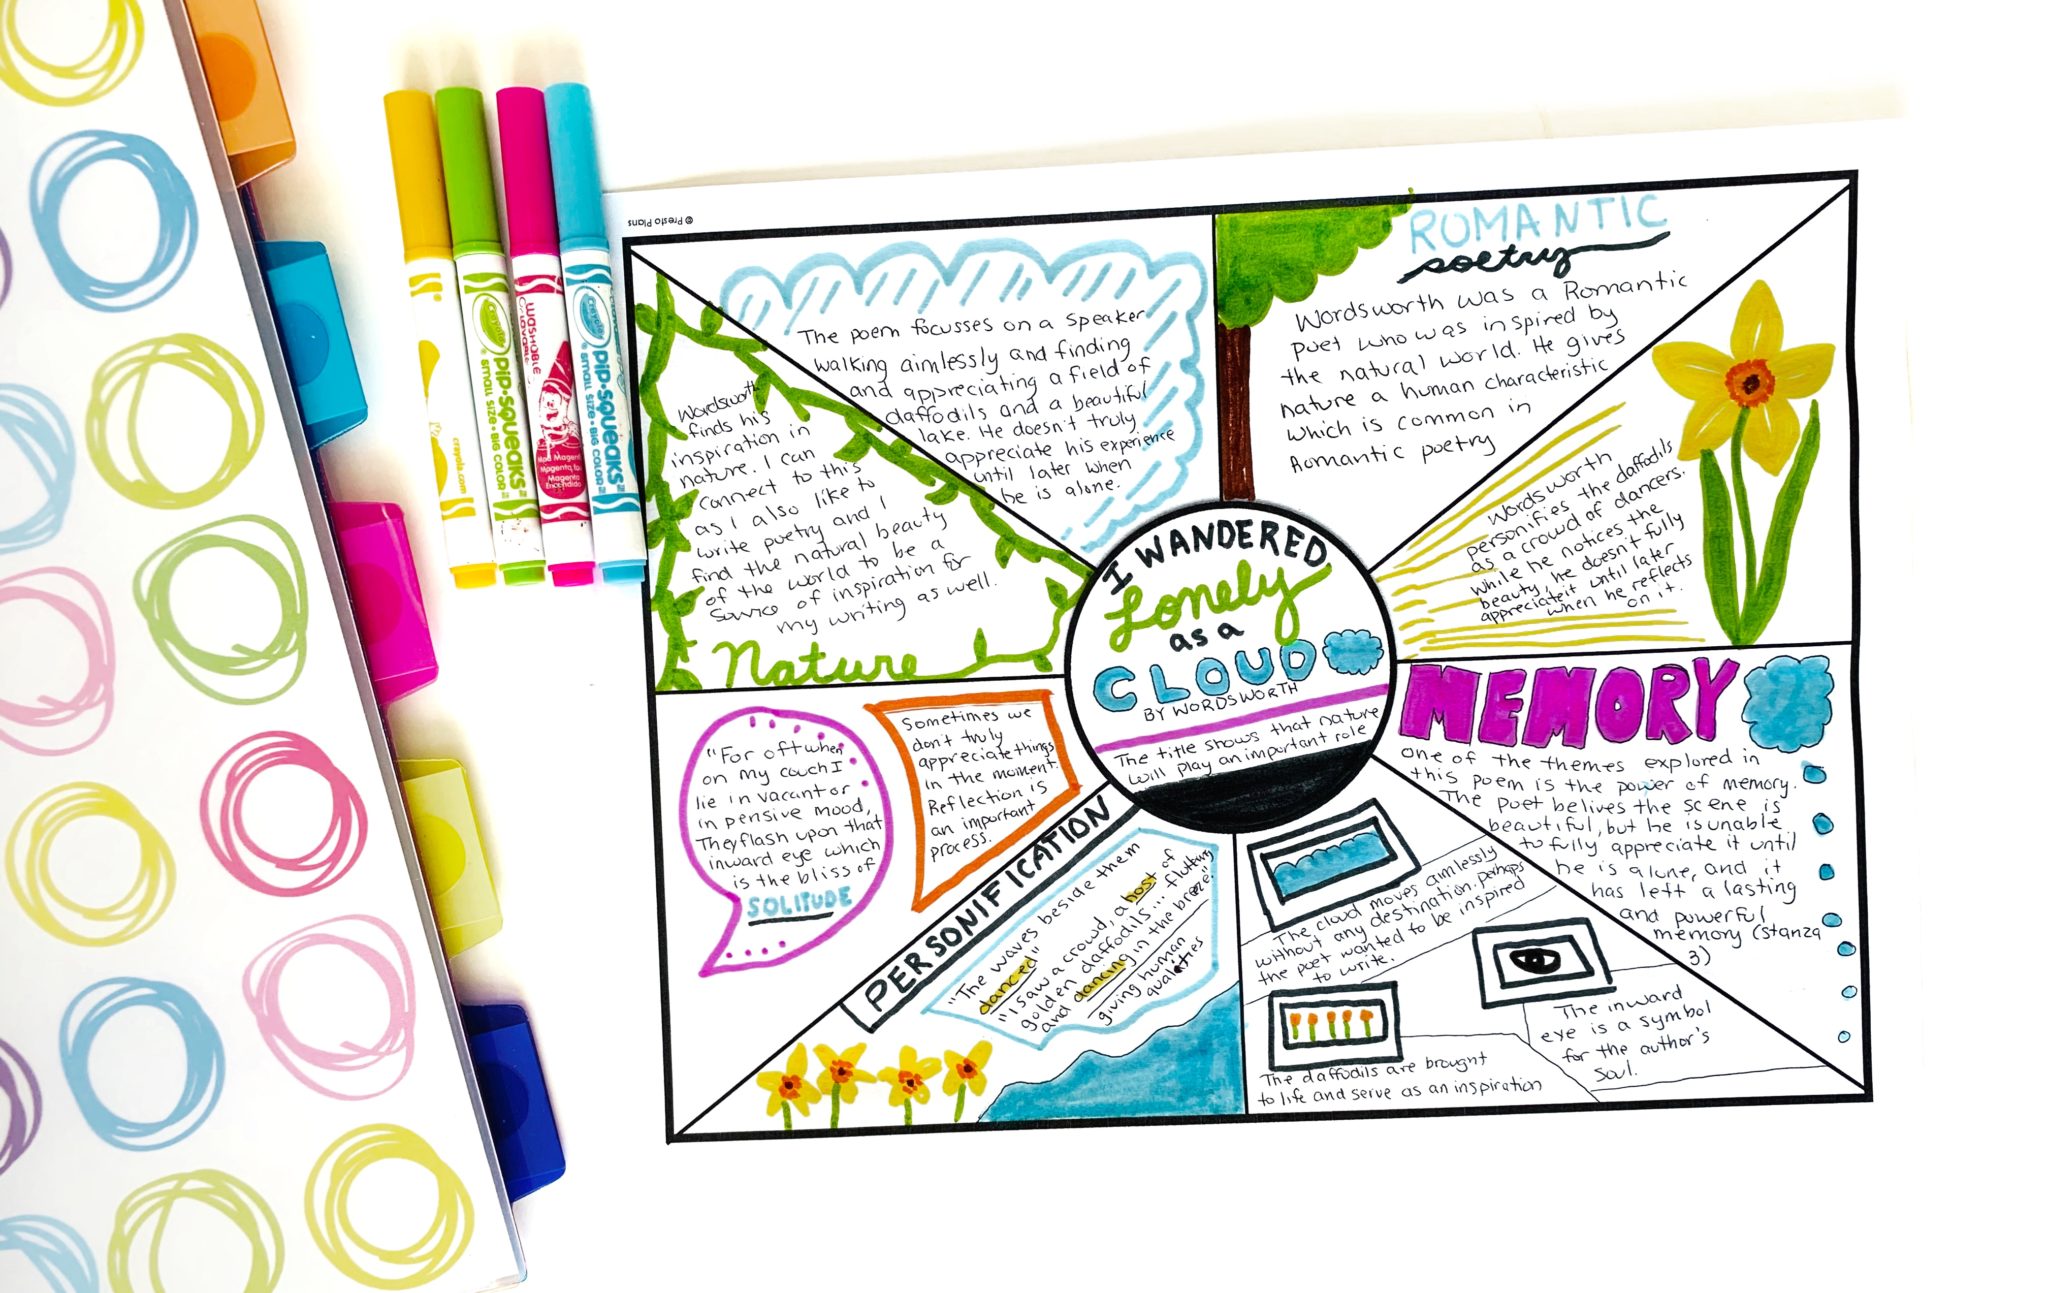 © Presto Plans
crayola
pip-squeaks
SMALL SIZE • BIG COLOR
crayola
WASHABLE
Magenta
crayola
pip-squeaks
SMALL SIZE • BIG COLOR
crayola.com
The poem focusses on a speaker
walking aimlessly and finding
and appreciating a field of
daffodils and a beautiful
lake. He doesn't truly
appreciate his experience
until later when
he is alone.
ROMANTIC
poetry
Wordsworth was a Romantic
poet who was inspired by
the natural world. He gives
nature a human characteristic
which is common in
Romantic poetry
Wordsworth
finds his
inspiration in
nature. I can
connect to this
as I also like to
write poetry and I
find the natural beauty
of the world to be a
source of inspiration for
my writing as well.
Nature
I WANDERED
Lonely
as a
CLOUD
BY WORDSWORTH
The title shows that nature
will play an important role
Wordsworth
personifies the daffodils
as a crowd of dancers.
while he notices the
beauty, he doesn't fully
appreciate it until later
when he reflects
on it.
"For oft when
on my couch I
lie in vacant or
in pensive mood,
They flash upon that
inward eye which
is the bliss of
SOLITUDE
Sometimes we
don't truly
appreciate things
in the moment.
Reflection is
an important
process.
PERSONIFICATION
"The waves beside them
danced"
"I saw a crowd, a host of
golden daffodils... fluttring
and dancing in the breeze."
giving human
qualities
The cloud moves aimlessly
without any destination. Perhaps
the poet wanted to be inspired
to write.
The daffodils are brought
to life and serve as an inspiration
The inward
eye is a symbol
for the author's
soul.
MEMORY
one of the themes explored in
this poem is the power of memory.
The poet belives the scene is
beautiful, but he is unable
to fully appreciate it until
he is alone, and it
has left a lasting
and powerful
memory (stanza
3)